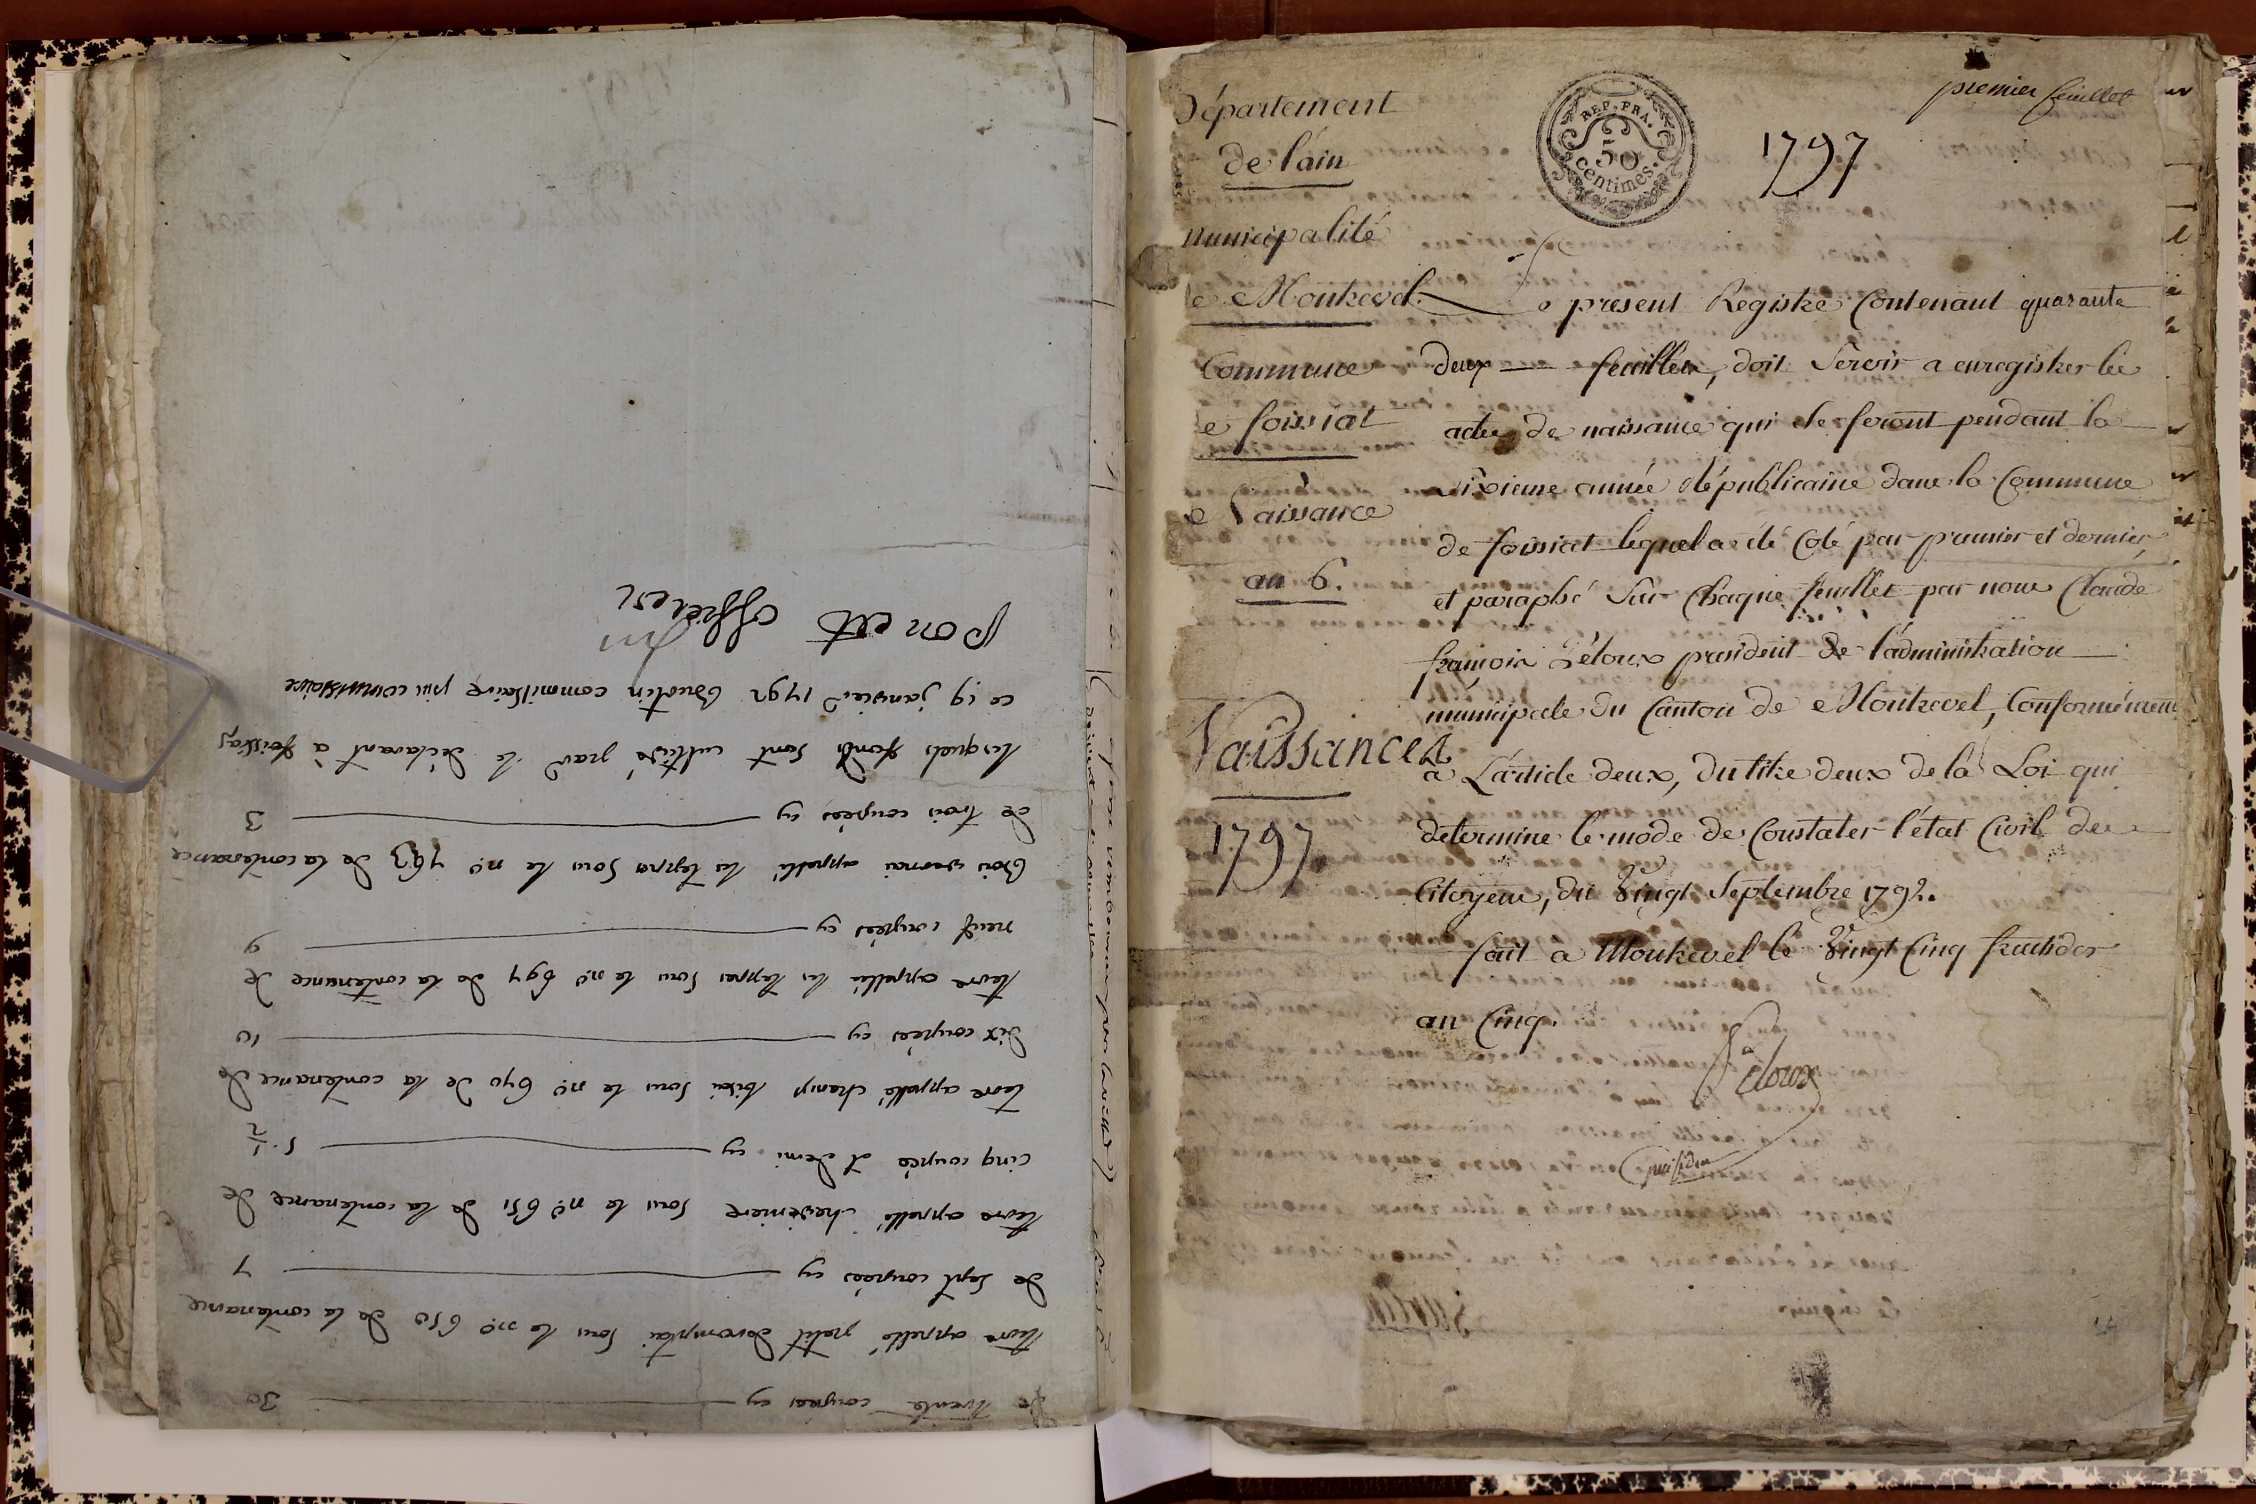 premier feuillet
Département
de l'ain
REP. FRA.
50
centimes.
1797
municipalité
e Montrevel.
Commune
e foissiat
Naissance
an 6.
Naissances
1797
e present Registre Contenant quarante
deux feuillets, doit Servir a enregistrer les
actes de naissance qui se feront pendant la
Sixieme année Républicaine dans la Commune
de foissiat lequel a été Coté par premier et dernier
et paraphé Sur Chaque feuillet par nous Claude
françois Péloux president de l'administration
municipale du Canton de Montrevel, Conformément
a L'article deux, du titre deux de la Loi qui
determine le mode de Constater l'état Civil des
Citoyens, du Vingt Septembre 1792.
fait a Montrevel le Vingt Cinq fructidor
an Cinq.
Péloux
president
de trente coupées cy 30
terre appellé petit sous le no. 650 de la contenance
de sept coupées cy 7
terre appellé cheneviere sous le no. 651 de la contenance de
cinq coupées et demi cy 5 1/2
terre appellé champ sous le no. 690 de la contenance de
dix coupées cy 10
terre appellée les teppes sous le no. 694 de la contenance de
neuf coupées cy 9
Bois appellé les teppes sous le no. 793 de la contenance
de trois coupées cy 3
lesquels fonds sont cultivés par le déclarant à foissiat
ce 19 janvier 1792 commissaire commissaire
poncet officier